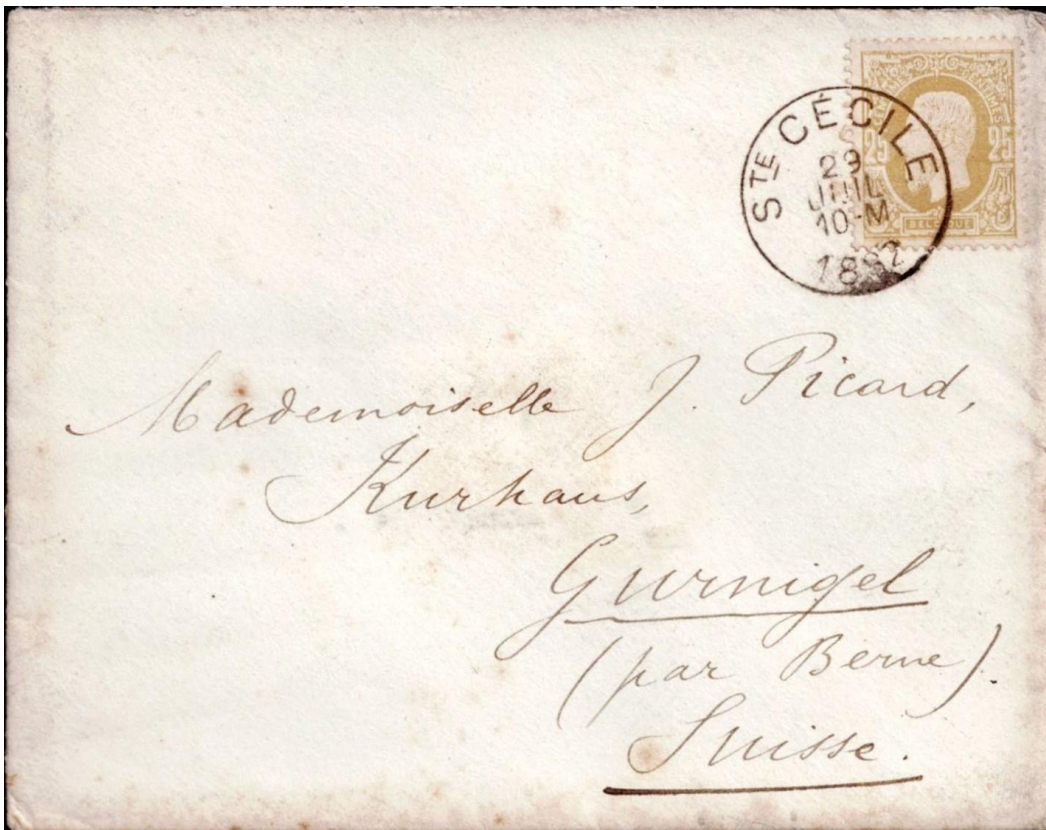 STE CÉCILE
29
JUIL
10-M
1882
25 25
BELGIQUE
Mademoiselle J. Picard,
Kurhaus,
Gurnigel
(par Berne).
Suisse.